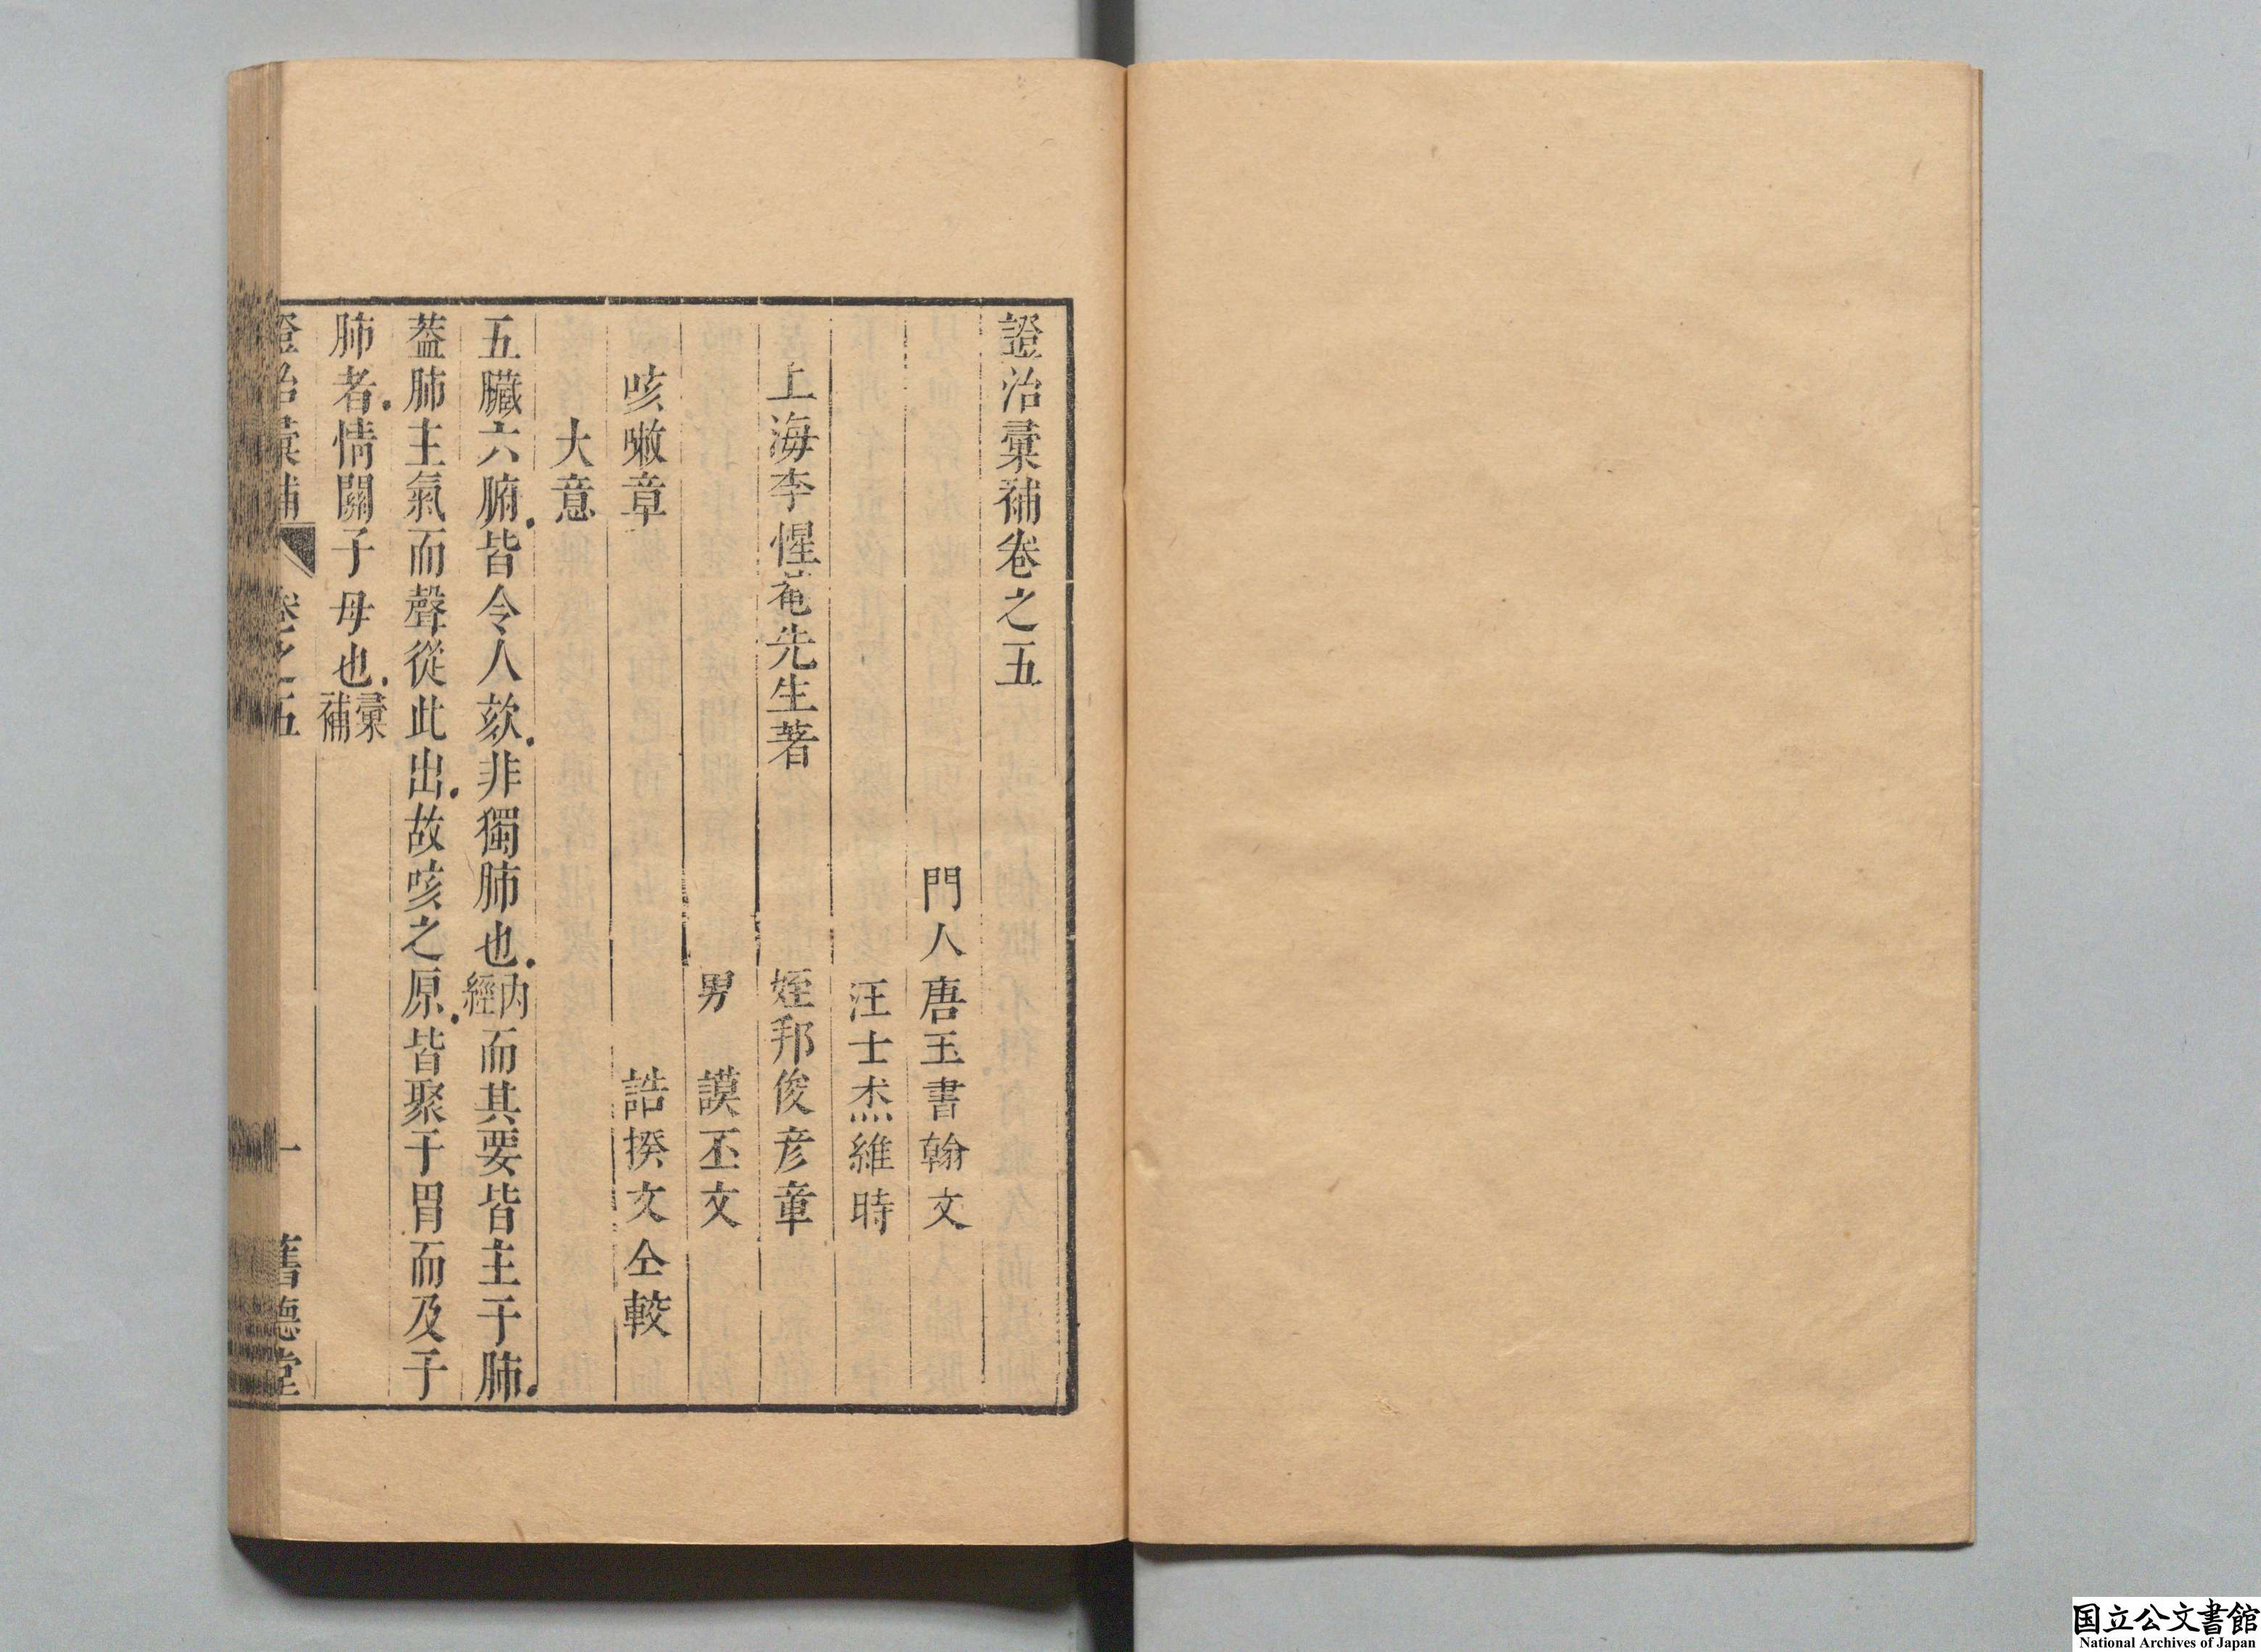 證治彚補卷之五
門人唐玉書翰文
汪士杰維時
上海李惺菴先生著 姪邦俊彥章
男 謨丕文
咳嗽章 誥揆文仝較
大意
五臟六腑皆令人欬非獨肺也內經而其要皆主于肺
葢肺主氣而聲從此出故咳之原皆聚于胃而及于
肺者情關子母也彚補
證治彚補 卷之五 一 舊德堂
国立公文書館
National Archives of Japan